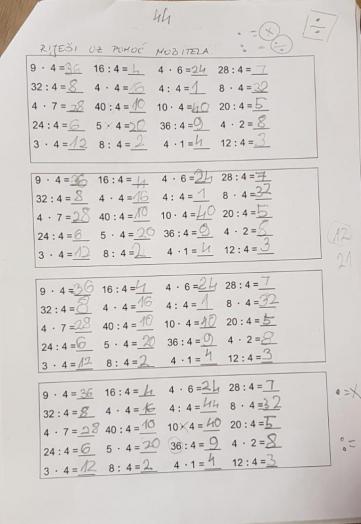 44
· = ×
: = ÷
÷
RIJEŠI UZ POMOĆ MOBITELA
9 · 4 = 36 16 : 4 = 4 4 · 6 = 24 28 : 4 = 7
32 : 4 = 8 4 · 4 = 16 4 : 4 = 1 8 · 4 = 32
4 · 7 = 28 40 : 4 = 10 10 · 4 = 40 20 : 4 = 5
24 : 4 = 6 5 · 4 = 20 36 : 4 = 9 4 · 2 = 8
3 · 4 = 12 8 : 4 = 2 4 · 1 = 4 12 : 4 = 3
9 · 4 = 36 16 : 4 = 4 4 · 6 = 24 28 : 4 = 7
32 : 4 = 8 4 · 4 = 16 4 : 4 = 1 8 · 4 = 32
4 · 7 = 28 40 : 4 = 10 10 · 4 = 40 20 : 4 = 5
24 : 4 = 6 5 · 4 = 20 36 : 4 = 9 4 · 2 =
3 · 4 = 12 8 : 4 = 2 4 · 1 = 4 12 : 4 = 3
12
21
9 · 4 = 36 16 : 4 = 4 4 · 6 = 24 28 : 4 = 7
32 : 4 = 8 4 · 4 = 16 4 : 4 = 1 8 · 4 = 32
4 · 7 = 28 40 : 4 = 10 10 · 4 = 40 20 : 4 = 5
24 : 4 = 6 5 · 4 = 20 36 : 4 = 9 4 · 2 = 8
3 · 4 = 12 8 : 4 = 2 4 · 1 = 4 12 : 4 = 3
9 · 4 = 36 16 : 4 = 4 4 · 6 = 24 28 : 4 = 7
32 : 4 = 8 4 · 4 = 16 4 : 4 = 44 8 · 4 = 32
4 · 7 = 28 40 : 4 = 10 10 × 4 = 40 20 : 4 = 5
24 : 4 = 6 5 · 4 = 20 36 : 4 = 9 4 · 2 = 8
3 · 4 = 12 8 : 4 = 2 4 · 1 = 4 12 : 4 = 3
· = ×
: =